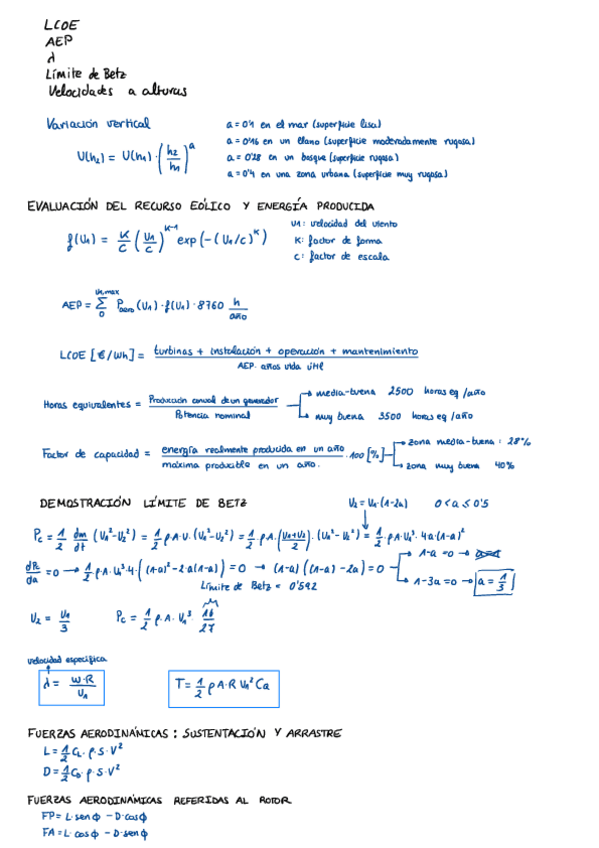 LCOE
AEP
λ
Límite de Betz
Velocidades a alturas
Variación vertical
a = 0'1 en el mar (superficie lisa)
a = 0'16 en un llano (superficie moderadamente rugosa)
U(h₂) = U(h₁) · (h₂/h₁)^a
a = 0'28 en un bosque (superficie rugosa)
a = 0'4 en una zona urbana (superficie muy rugosa)
EVALUACIÓN DEL RECURSO EÓLICO Y ENERGÍA PRODUCIDA
f(U₁) = K/C (U₁/C)^(K-1) exp(-(U₁/C)^K)
U₁: velocidad del viento
K: factor de forma
C: factor de escala
AEP = Σ_0^(U₁,max) P_aero (U₁) · f(U₁) · 8760 h/año
LCOE [€/Wh] = turbinas + instalación + operación + mantenimiento / AEP. años vida útil
Horas equivalentes = Producción anual de un generador / Potencia nominal
→ media-buena 2500 horas eq /año
→ muy buena 3500 horas eq /año
Factor de capacidad = energía realmente producida en un año / máxima producible en un año. · 100 [%]
→ zona media-buena: 28%
→ zona muy buena 40%
DEMOSTRACIÓN LÍMITE DE BETZ
U₂ = U₁·(1-2a) 0<a≤0'5
Pc = 1/2 dm/dt (U₁²-U₂²) = 1/2 ρ·A·U·(U₁²-U₂²) = 1/2 ρ·A·((U₁+U₂)/2)·(U₁²-U₂²) = 1/2 ρ·A·U₁³·4a·(1-a)²
dPc/da = 0 → 1/2 ρ·A·U₁³·4·((1-a)²-2·a(1-a)) = 0 → (1-a)((1-a)-2a) = 0
→ 1-a = 0 → a=1
→ 1-3a = 0 → a = 1/3
Límite de Betz = 0'592
U₂ = U₁/3 Pc = 1/2 ρ·A·U₁³ 16/27
velocidad específica
λ = W·R/U₁ T = 1/2 ρ A·R U₁² Ca
FUERZAS AERODINÁMICAS: SUSTENTACIÓN Y ARRASTRE
L = 1/2 C_L·ρ·S·V²
D = 1/2 C_D·ρ·S·V²
FUERZAS AERODINÁMICAS REFERIDAS AL ROTOR
FP = L·senϕ - D·cosϕ
FA = L·cosϕ - D·senϕ